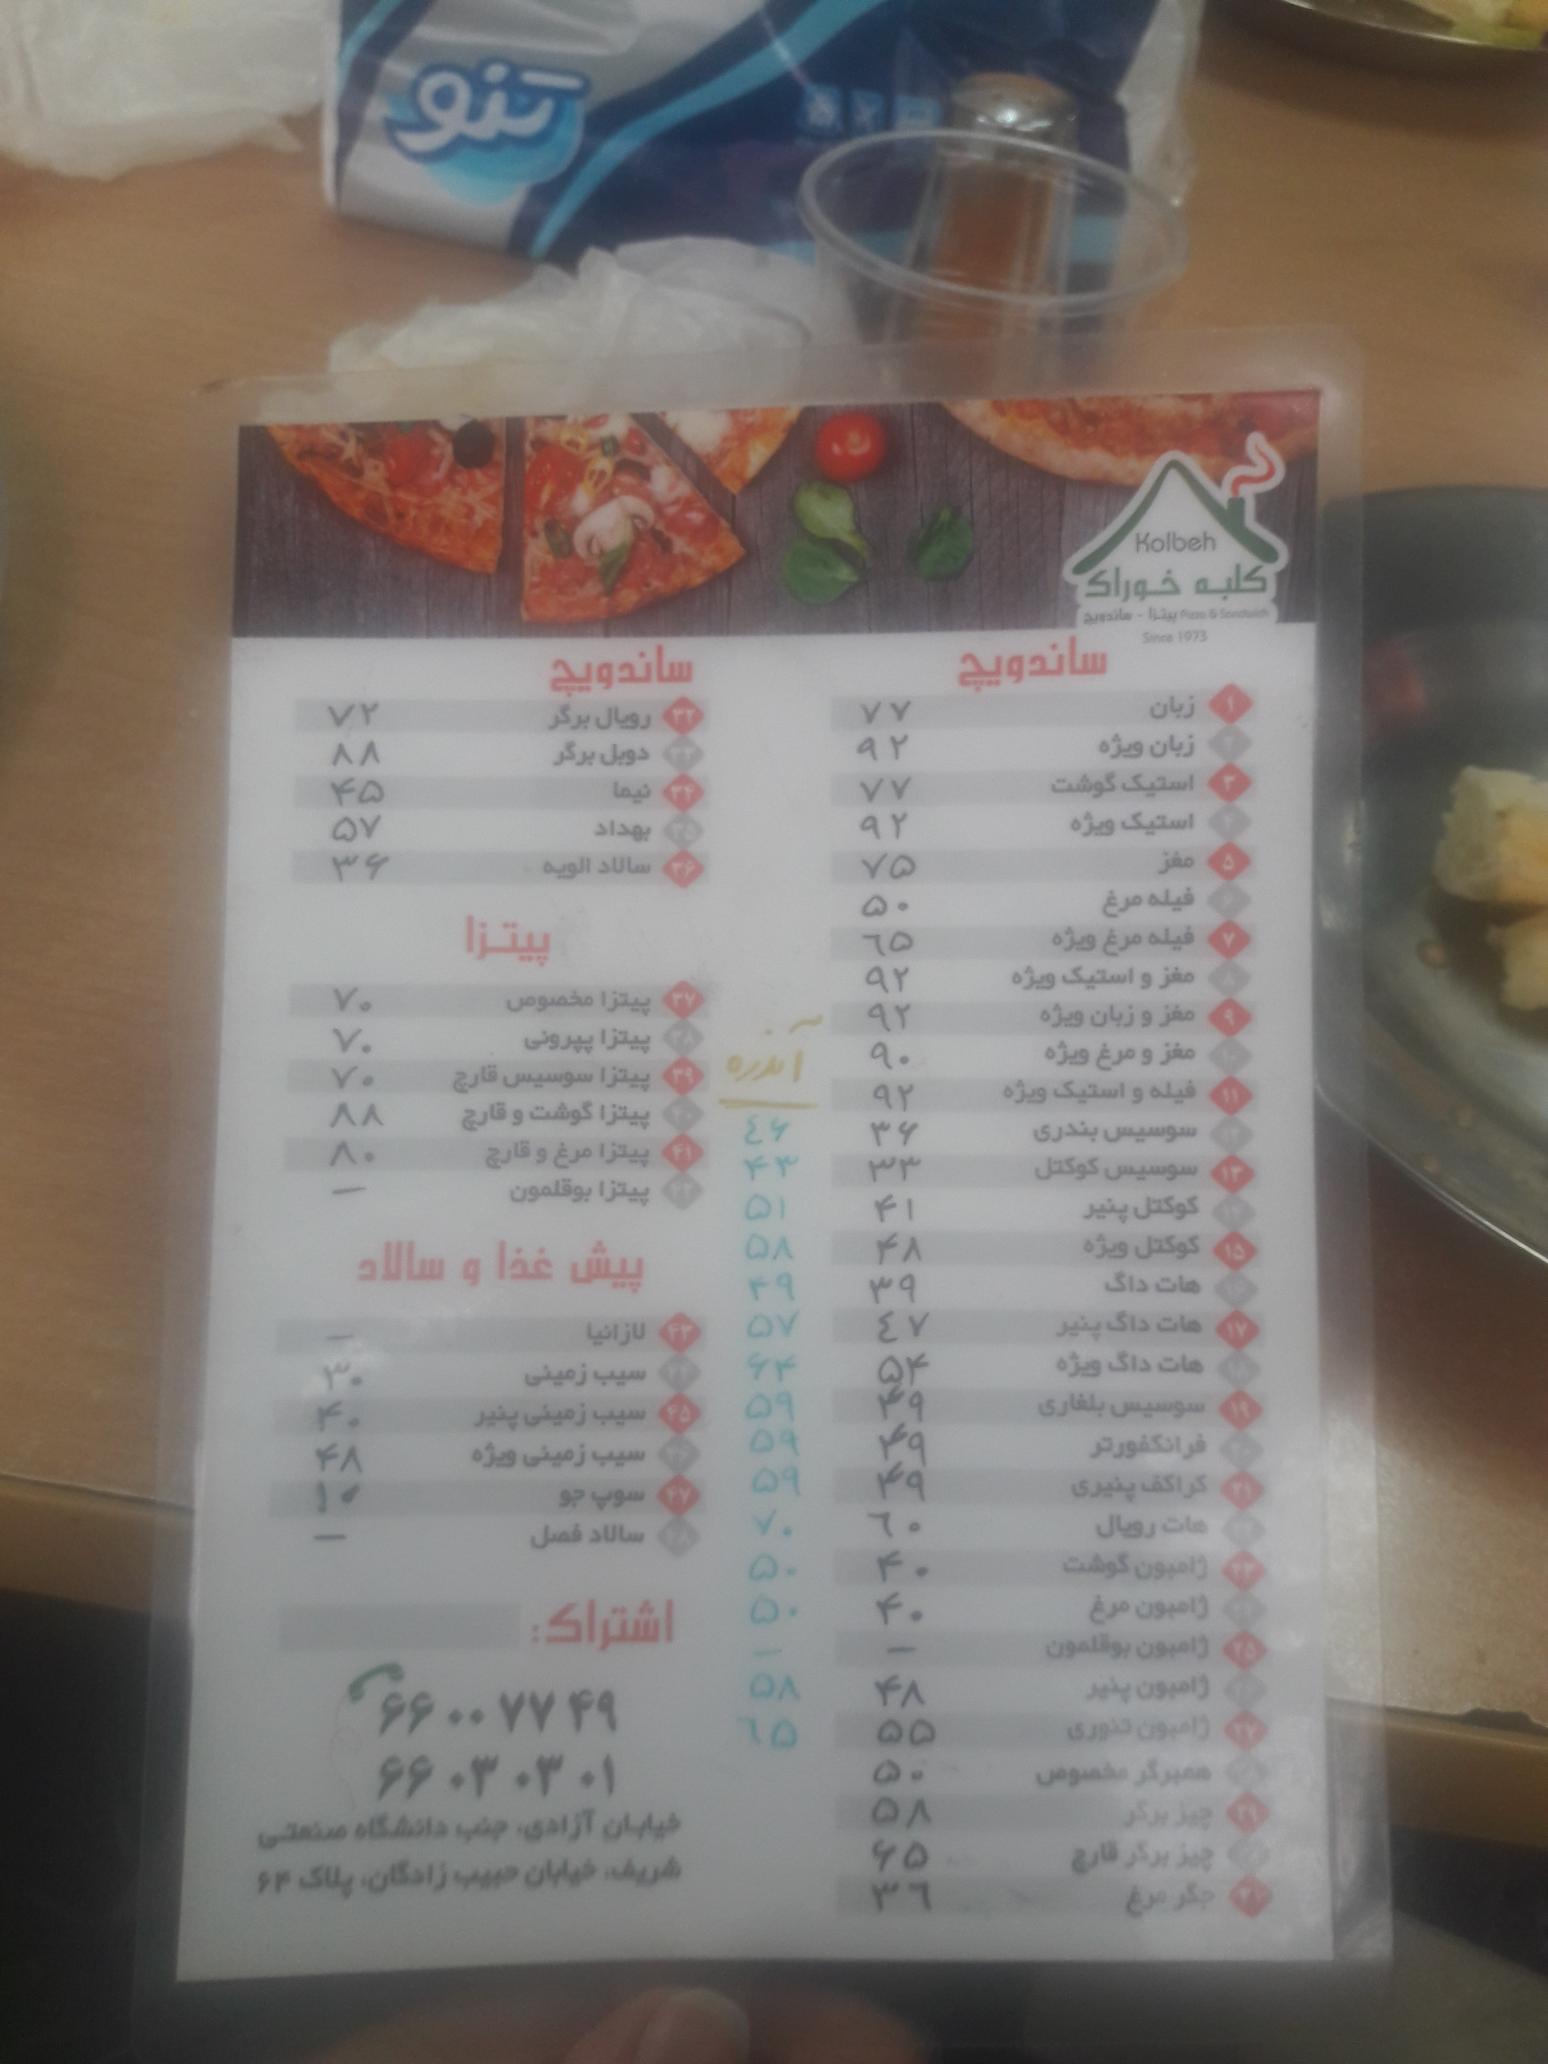 تنو
Kolbeh
کلبه خوراک
پیتزا - ساندویچ Pizza & Sandwich
Since 1973
ساندویچ
۱ زبان ۷۷
۲ زبان ویژه ۹۲
۳ استیک گوشت ۷۷
۴ استیک ویژه ۹۲
۵ مغز ۷۵
۶ فیله مرغ ۵۰
۷ فیله مرغ ویژه ۶۵
۸ مغز و استیک ویژه ۹۲
۹ مغز و زبان ویژه ۹۲
۱۰ مغز و مرغ ویژه ۹۰
۱۱ فیله و استیک ویژه ۹۲
آندره
۱۲ سوسیس بندری ۳۶ ۴۶
۱۳ سوسیس کوکتل ۳۳ ۴۳
۱۴ کوکتل پنیر ۴۱ ۵۱
۱۵ کوکتل ویژه ۴۸ ۵۸
۱۶ هات داگ ۳۹ ۴۹
۱۷ هات داگ پنیر ۴۷ ۵۷
۱۸ هات داگ ویژه ۵۴ ۶۴
۱۹ سوسیس بلغاری ۴۹ ۵۹
۲۰ فرانکفورتر ۴۹ ۵۹
۲۱ کراکف پنیری ۴۹ ۵۹
۲۲ هات رویال ۶۰ ۷۰
۲۳ ژامبون گوشت ۴۰ ۵۰
۲۴ ژامبون مرغ ۴۰ ۵۰
۲۵ ژامبون بوقلمون — —
۲۶ ژامبون پنیر ۴۸ ۵۸
۲۷ ژامبون تنوری ۵۵ ۶۵
۲۸ همبرگر مخصوص ۵۰
۲۹ چیز برگر ۵۸
۳۰ چیز برگر قارچ ۶۵
۳۱ جگر مرغ ۳۶
ساندویچ
۳۲ رویال برگر ۷۲
۳۳ دوبل برگر ۸۸
۳۴ نیما ۴۵
۳۵ بهداد ۵۷
۳۶ سالاد الویه ۳۶
پیتزا
۳۷ پیتزا مخصوص ۷۰
۳۸ پیتزا پپرونی ۷۰
۳۹ پیتزا سوسیس قارچ ۷۰
۴۰ پیتزا گوشت و قارچ ۸۸
۴۱ پیتزا مرغ و قارچ ۸۰
۴۲ پیتزا بوقلمون —
پیش غذا و سالاد
۴۳ لازانیا —
۴۴ سیب زمینی ۳۰
۴۵ سیب زمینی پنیر ۴۰
۴۶ سیب زمینی ویژه ۴۸
۴۷ سوپ جو ۱۰
۴۸ سالاد فصل —
اشتراک:
۶۶ ۰۰ ۷۷ ۴۹
۶۶ ۰۳ ۰۳ ۰۱
خیابان آزادی، جنب دانشگاه صنعتی
شریف، خیابان حبیب زادگان، پلاک ۶۴